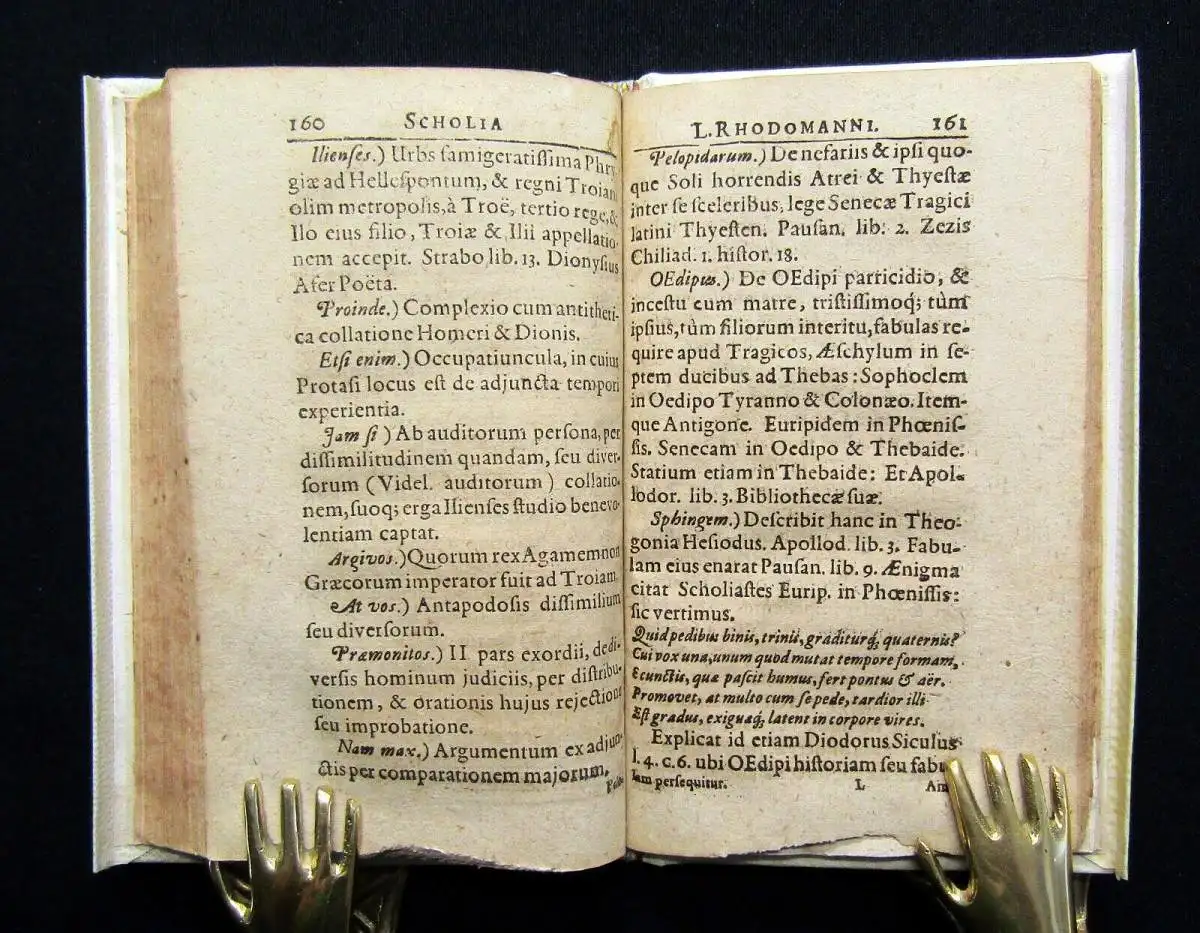 160 SCHOLIA
Ilienses.) Urbs famigeratiſſima Phry
giæ ad Helleſpontum, & regni Troiani
olim metropolis, à Troë, tertio rege, &
Ilo eius filio, Troiæ & Ilii appellatio-
nem accepit. Strabo lib. 13. Dionyſius
Afer Poëta.
Proinde.) Complexio cum antitheti-
ca collatione Homeri & Dionis.
Etſi enim.) Occupatiuncula, in cuius
Protaſi locus eſt de adjuncta tempori
experientia.
Jam ſi ) Ab auditorum perſona, per
diſſimilitudinem quandam, ſeu diver-
ſorum (Videl. auditorum) collatio-
nem, ſuoq; erga Ilienſes ſtudio benevo-
lentiam captat.
Argivos.) Quorum rex Agamemnon
Græcorum imperator fuit ad Troiam.
At vos.) Antapodoſis diſſimilium
ſeu diverſorum.
Præmonitos.) II pars exordii, de di-
verſis hominum judiciis, per diſtribu-
tionem, & orationis hujus rejectione
ſeu improbatione.
Nam max.) Argumentum ex adjun-
ctis per comparationem majorum.
L. RHODOMANNI. 161
Pelopidarum.) De nefariis & ipſi quo-
que Soli horrendis Atrei & Thyeſtæ
inter ſe ſceleribus, lege Senecæ Tragici
latini Thyeſten. Pauſan. lib. 2. Zezis
Chiliad. 1. hiſtor. 18.
OEdipus.) De OEdipi parricidio, &
inceſtu cum matre, triſtiſſimoq; tùm
ipſius, tùm filiorum interitu, fabulas re-
quire apud Tragicos, Æſchylum in ſe-
ptem ducibus ad Thebas: Sophoclem
in Oedipo Tyranno & Colonæo. Item-
que Antigone. Euripidem in Phœniſ-
ſis. Senecam in Oedipo & Thebaide.
Statium etiam in Thebaide: Et Apol-
lodor. lib. 3. Bibliothecæ ſuæ.
Sphingem.) Deſcribit hanc in Theo-
gonia Heſiodus. Apollod. lib. 3. Fabu-
lam eius enarat Pauſan. lib. 9. Ænigma
citat Scholiaſtes Eurip. in Phœniſſis:
ſic vertimus.
Quid pedibus binis, trinis, graditurq; quaternis?
Cui vox una, unum quod mutat tempore formam,
E cunctis, quæ paſcit humus, fert pontus & aër.
Promovet, at multo cum ſe pede, tardior illi
Eſt gradus, exiguaq; latent in corpore vires.
Explicat id etiam Diodorus Siculus
l. 4. c. 6. ubi OEdipi hiſtoriam ſeu fabu
lam perſequitur. L